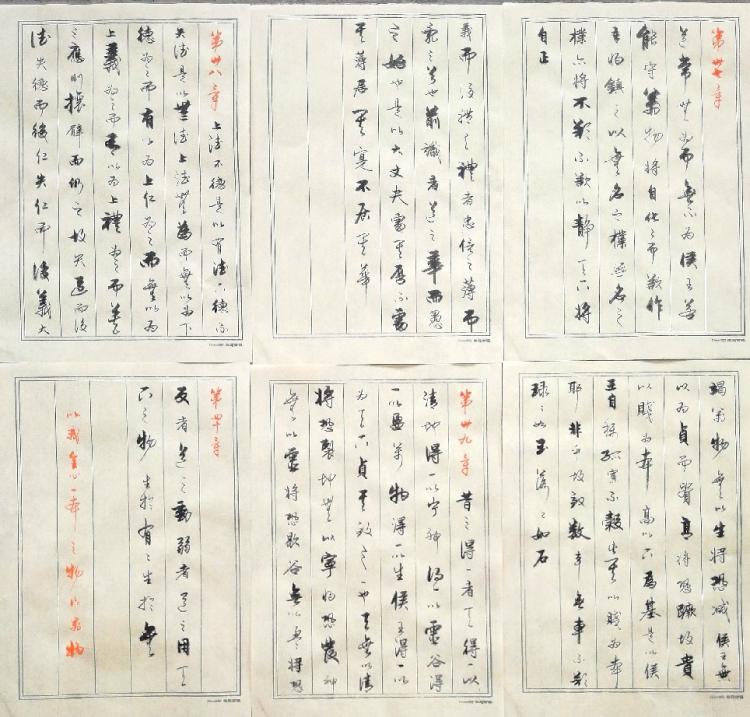 第卅七章
道常無為而無不為侯王若
能守萬物將自化々而欲作
吾將鎮之以無名之樸無名之
樸亦將不欲不欲以靜天下將
自正
第卅八章 上德不德是以有德下德不
失德是以無德上德無為而無以為下
德為之而有以為上仁為之而無以為
上義為之而有以為上禮為之而莫
之應則攘臂而仍之故失道而後
德失德而後仁失仁而後義失
義而後禮夫禮者忠信之薄而
亂之首也前識者道之華而愚
之始也是以大丈夫處其厚不處
其薄居其實不居其華
第卅九章 昔之得一者天得一以
清地得一以寧神得一以靈谷得
一以盈萬物得一以生侯王得一以
為天下貞其致之一也天無以清
將恐裂地無以寧將恐發神
無以靈將恐歇谷無以盈將恐
竭萬物無以生將恐滅侯王無
以為貞而貴高將恐蹶故貴
以賤為本高以下為基是以侯
王自稱孤寡不穀此其以賤為本
耶非乎故致數車無車不欲
琭々如玉落々如石
第四十章
反者道之動弱者道之用天
下之物生於有々生於無